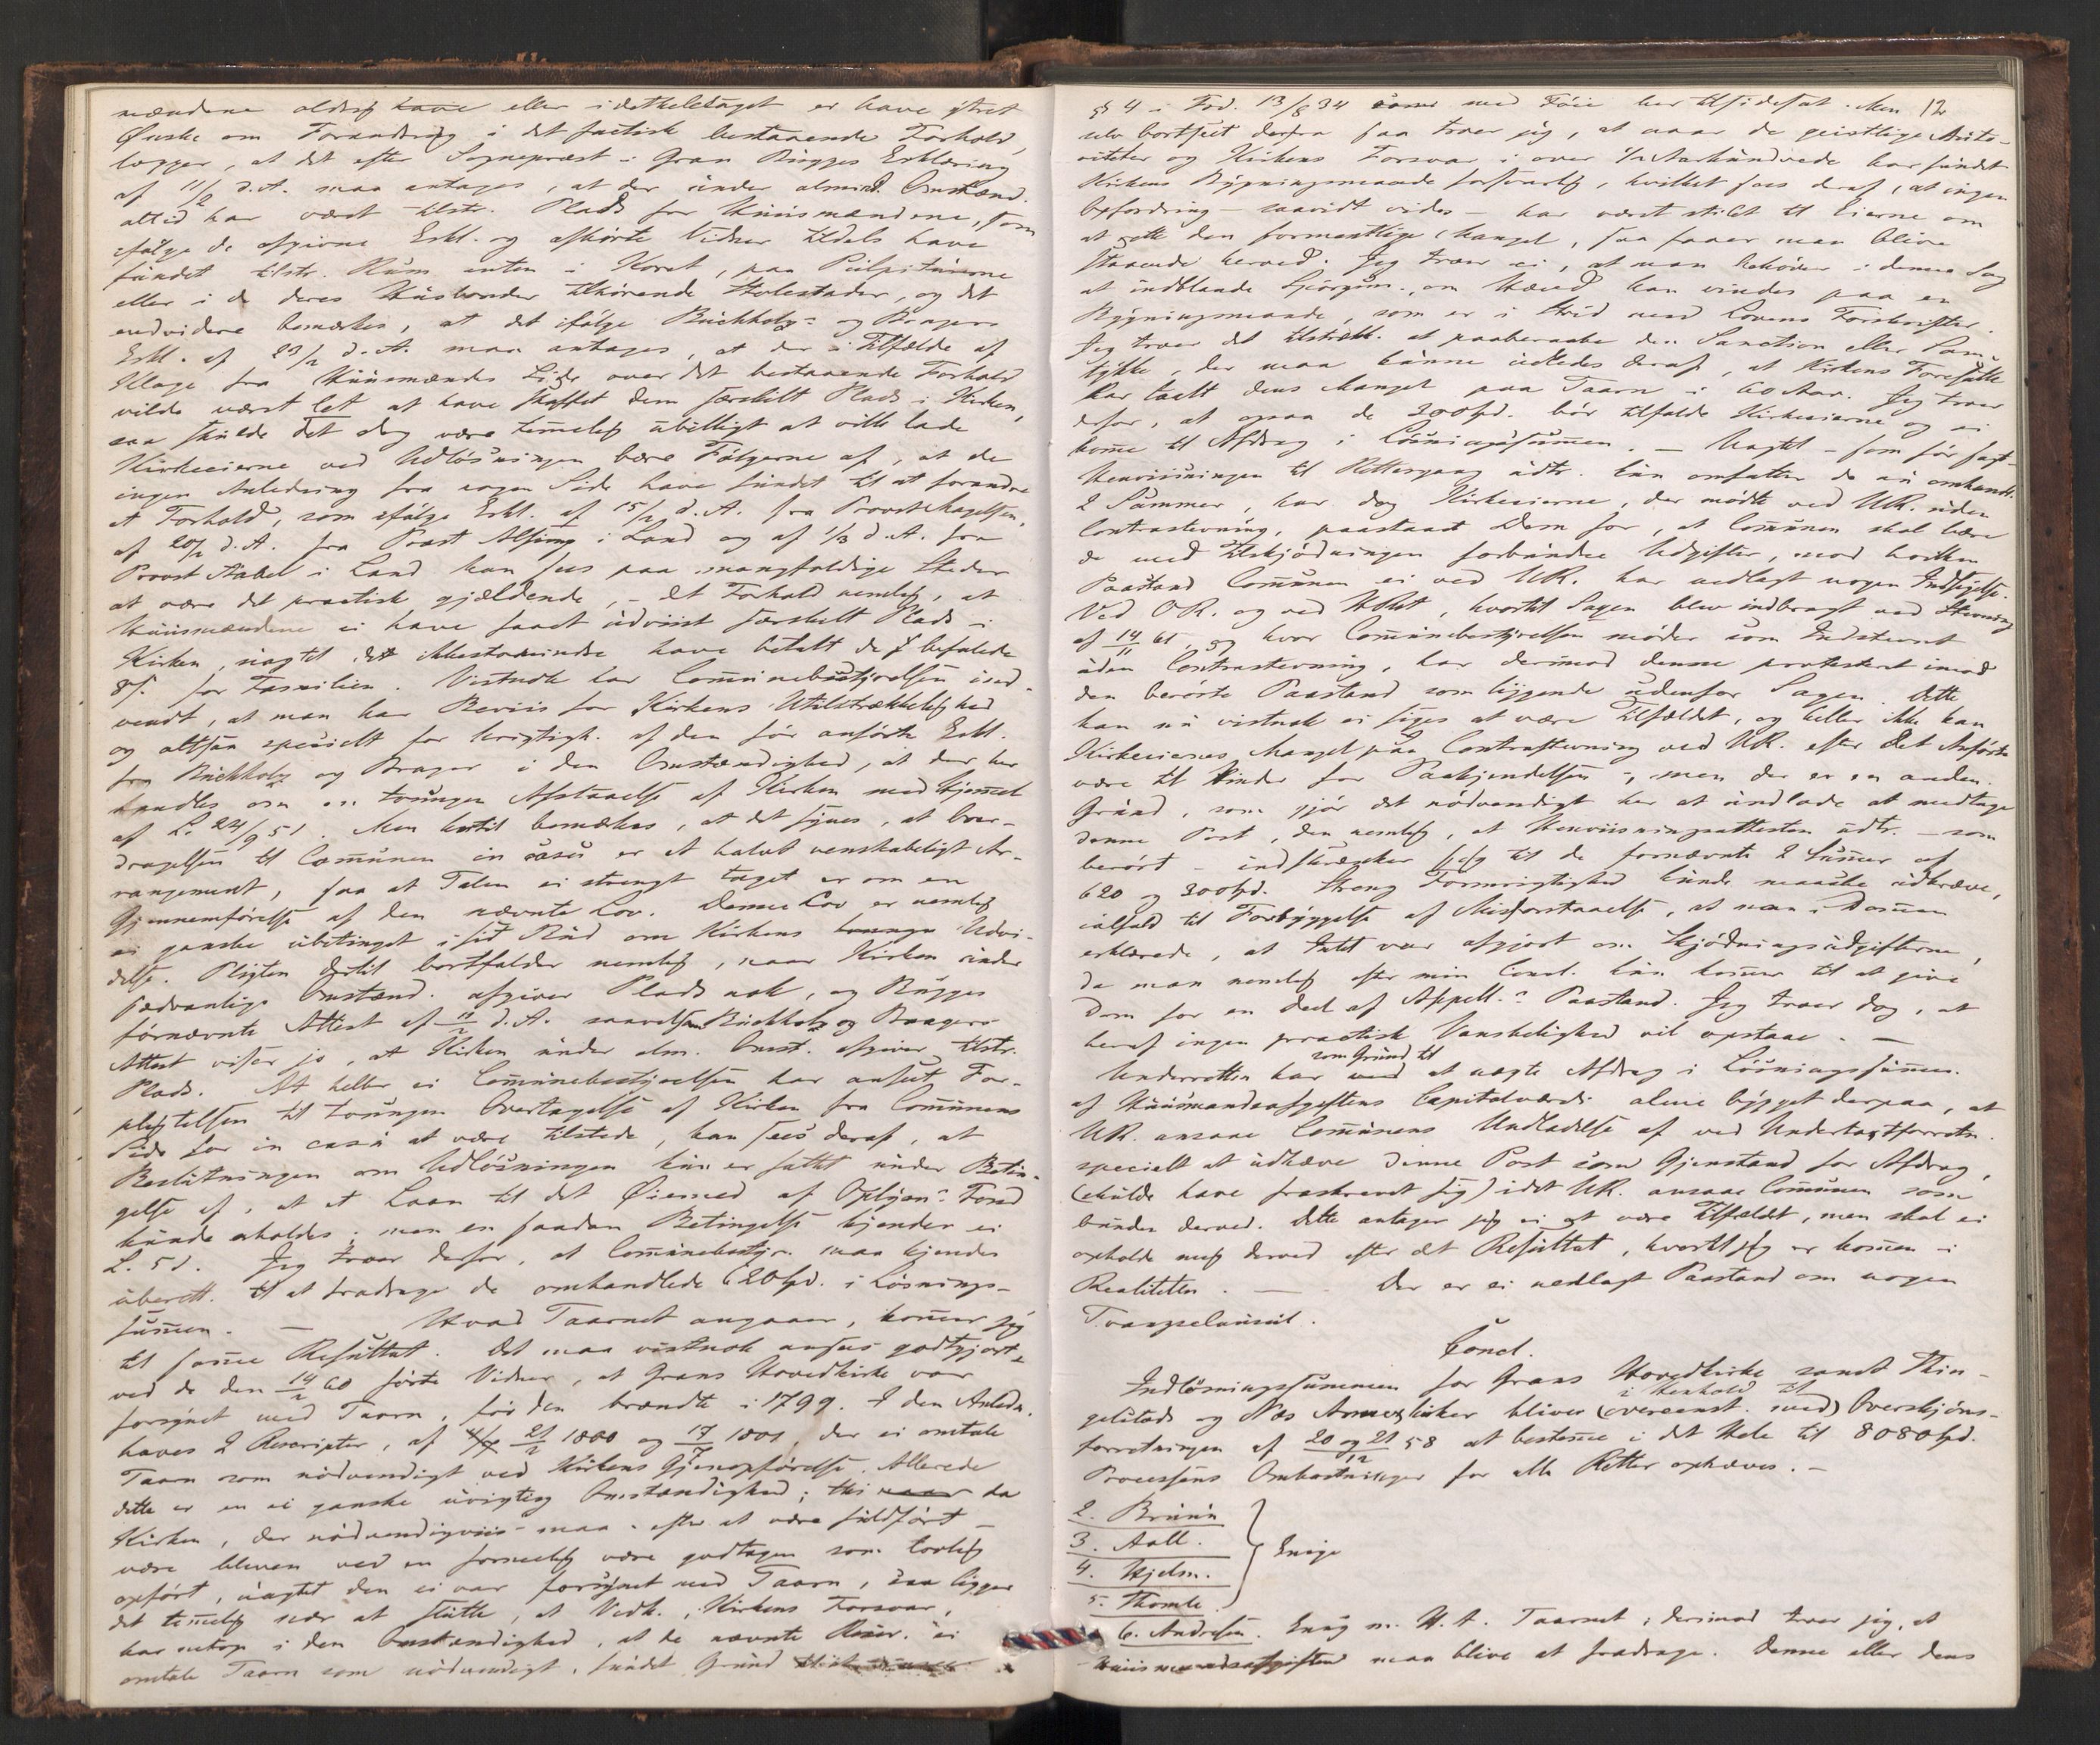 mændene aldrig have eller idetheletaget er have ytret
Ønske om Forandring i det factisk bestaaende Forhold,
lægger, at det efter Sognepræst i Gran Bugges Erklæring
af 11/2 d. A. maa antages, at der under almind. Omstænd.
altid har været tilstr. Plads for Huusmændene, som
ifølge de afgivne Erkl. og afhørte Vidner tildels have
fundet tilstr. Rum enten i Koret, paa Pulpiturerne
eller i de deres Husbonder tilhørende Stolestader, og det
endvidere bemærkes, at det ifølge Buchholz's og Bragers
Erkl. af 23/2 d. A. maa antages, at der i Tilfælde af
Klage fra Huusmænds Side over det bestaaende Forhold
vilde været let at have skaffet dem særskilt Plads i Kirken,
saa skulde det dog være temmelig ubilligt at ville lade
Kirkeeierne ved Udløsningen bære Følgerne af, at de
ingen Anledning fra nogen Side have fundet til at forandre
et Forhold, som ifølge Erkl. af 15/2 d. A. fra Provst Magelssen,
af 20/2 d. A. fra Præst Alsing i Land og af 1/3 d. A. fra
Provst Aabel i Land kan sees paa mangfoldige Steder
at være det practisk gjældende, - et Forhold nemlig, at
Huusmændene ei have faaet udviist særskilt Plads i
Kirken, uagtet de ikkestomindre have betalt de befalede
8 s. for Familien. Vistnok har Communebestyrelsen ind-
vendt, at man har Beviis for Kirkens Utilstrækkelighed
og altsaa specielt for Urigtigh. af den før anførte Erkl.
fra Buchholz og Brager i den Omstændighed, at der her
handles om en tvungen Afstaaelse af Kirken med Hjemmel
af L. 24/9 51. Men hertil bemærkes, at det synes, at Over-
dragelsen til Communen in casu er et halvt venskabeligt Ar-
rangement, saa at Talen ei strengt taget er om en
Gjennemførelse af den nævnte Lov. Denne Lov er nemlig
ei ganske ubetinget i sit Bud om Kirkens tvungne Udvi-
delse. Pligten dertil bortfalder nemlig, naar Kirken under
sædvanlige Omstænd. afgiver Plads nok, og Bugges
førnævnte Attest af 11/2 d. A. saavelsom Buchholz og Braagers
Attest viser jo, at Kirken under alm. Omst. afgiver tilstr.
Plads. At heller ei Communebestyrelsen har anseet For-
pligtelsen til tvungen Overtagelse af Kirken fra Communens
Side for in casu at være tilstede, kan sees deraf, at
Beslutningen om Udløsningen kun er fattet under Betin-
gelse af, at et Laan til det Øiemed af Oplysn.s Fond
kunde erholdes; men en saadan Betingelse kjender ei
L. 51. Jeg troer derfor, at Communebestyr. maa kjendes
uberett. til at fradrage de omhandlede 620 Spd. i Løsnings-
summen. - Hvad Taarnet angaaer, kommer jeg
til samme Resultat. Det maa vistnok ansees godtgjort,
ved de den 14/2 60 førte Vidner, at Grans Hovedkirke var
forsynet med Taarn, før den brændte i 1799. I den Anledn.
haves 2 Rescripter, af 21/2 1800 og 17/7 1801, der ei omtale
Taarn som nødvendigt ved Kirkens Gjenopførelse. Allerede
dette er en ei ganske uvigtig Omstændighed; thi naar da
Kirken, der nødvendigviis maa - efter at være fuldført -
være bleven ved en formelig være godtagen som lovlig
opført, uagtet den ei var forsynet med Taarn, saa ligger
det temmelig nær at slutte, at Vedk., Kirkens Forsvar,
har netop i den Omstændighed, at de nævnte Rescr. ei
omtale Taarn som nødvendigt, fundet Grund
§ 4 i Frd. 13/8 34 som med Føie her tilsidesat. Men 12
selv bortseet derfra saa troer jeg, at naar de geistlige Auto-
riteter og Kirkens Forsvar i over 1/2 Aarhundrede har fundet
Kirkens Bygningsmaade forsvarlig, hvilket sees deraf, at ingen
Opfordring - saavidt vides - har været stilet til Eierne om
at rette den formentlige Mangel, saa faaer man blive
staaende herved. Jeg troer ei, at man behøver i denne Sag
at indblande Spørgsm. om Hævd kan vindes paa en
Bygningsmaade, som er i Strid med Lovens Forskrifter.
Jeg troer det tilstrækk. at paaberaabe den Sanction eller Sam-
tykke, der maa kunne udledes deraf, at Kirkens Foresatte
har taalt dens Mangel paa Taarn i 60 Aar. Jeg troer
derfor, at ogsaa de 300 Spd. bør tilfalde Kirkeeierne og ei
komme til Afdrag i Løsningssummen. - Uagtet - som før sagt -
Henviisningen til Rettergang udtr. kun omfatter de nu omhandl.
2 Summer, har dog Kirkeeierne, der mødte ved UR. uden
Contrastevning, paastaaet Dom for, at Communen skal bære
de med Tilskjødningen forbundne Udgifter, mod hvilken
Paastand Communen ei ved UR. har nedlagt nogen Indsigelse.
Ved OR. og ved HRet, hvortil Sagen blev indbragt ved Stevning
af 14/11 61, og hvor Communebestyrelsen møder som Indstevnt
uden Contrastevning, har derimod denne protesteret imod
den berørte Paastand som liggende udenfor Sagen. Dette
kan nu vistnok ei siges at være Tilfældet, og heller ikke kan
Kirkeeiernes Mangel paa Contrastevning ved UR. efter det Anførte
være til Hinder for Paakjendelsen; men der er en anden
Grund, som gjør det nødvendigt her at undlade at medtage
denne Post, den nemlig, at Henviisningsattesten udtr. - som
berørt - indskrænker sig til de fornævnte 2 Summer af
620 og 300 Spd. Streng Formrigtighed kunde maaske udkræve,
ialfald til Forbyggelse af Misforstaaelse, at man i Dommen
erklærede, at Intet var afgjort om Skjødningsudgifterne,
da man nemlig efter min Concl. kun kommer til at give
Dom for en Deel af Appell.s Paastand. Jeg troer dog, at
heraf ingen practisk Vanskelighed vil opstaae. -
som Grund til
Underretten har ved at nægte Afdrag i Løsningssummen
af Huusmandsafgiftens Capitalværdi alene bygget derpaa, at
UR. ansaae Communens Undladelse af ved Undertaxtforretn.
specielt at udhæve denne Post som Gjenstand for Afdrag,
(skulde have fraskrevet sig) idet UR. ansaae Communen som
bunden derved. Dette antager jeg ei at være Tilfældet, men skal ei
opholde mig derved efter det Resultat, hvortil jeg er kommen i
Realiteten. - Der er ei nedlagt Paastand om nogen
Tvangselnuist.
Concl.
Indløsningssummen for Grans Hovedkirke samt Thin-
i Henhold til
gelstads og Næs Annexkirker bliver (overeenst. med) Overskjøns-
forretningen af 20 og 21/12 58 at bestemme i det Hele til 8080 Spd.
Processens Omkostninger for alle Retter ophæves. -
2. Bruun
3. Aall.
4. Hjelm. Enige
5. Thomle
6. Andresen. Enig m. H. t. Taarnet; derimod troer jeg, at
Huusmandsafgiften maa blive at fradrage. Denne eller dens